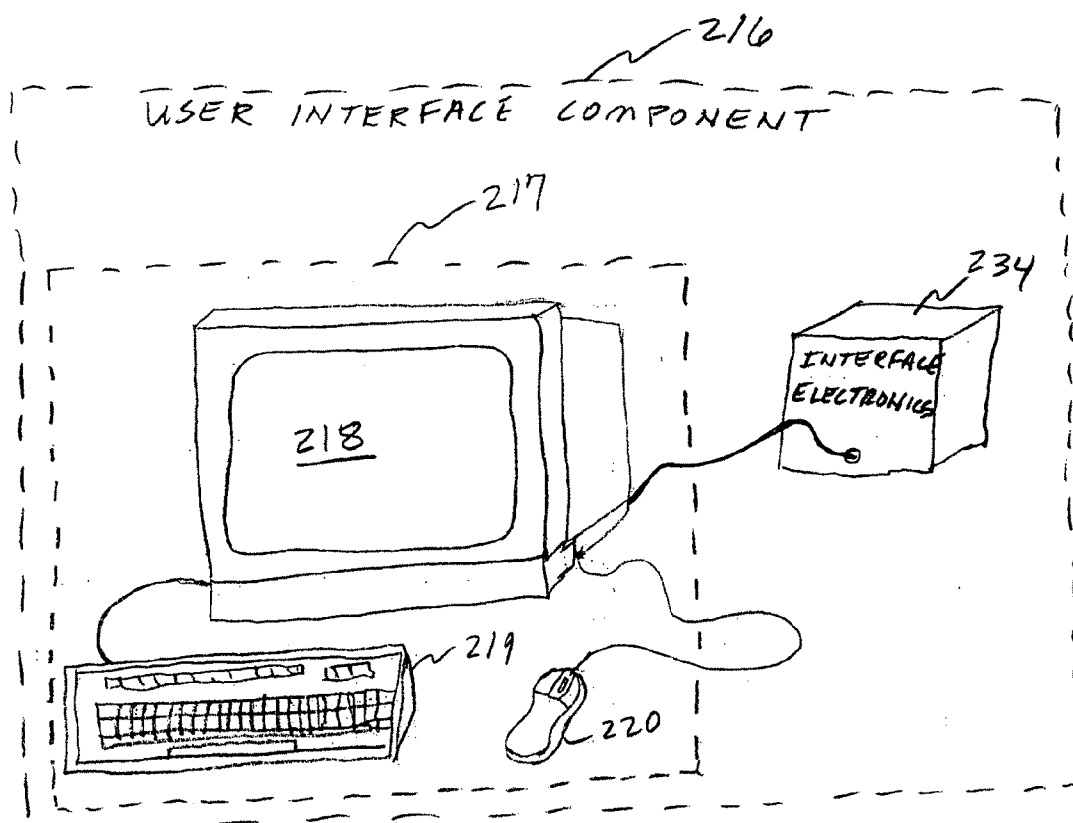 216
USER INTERFACE COMPONENT
217
234
INTERFACE
ELECTRONICS
218
219
220